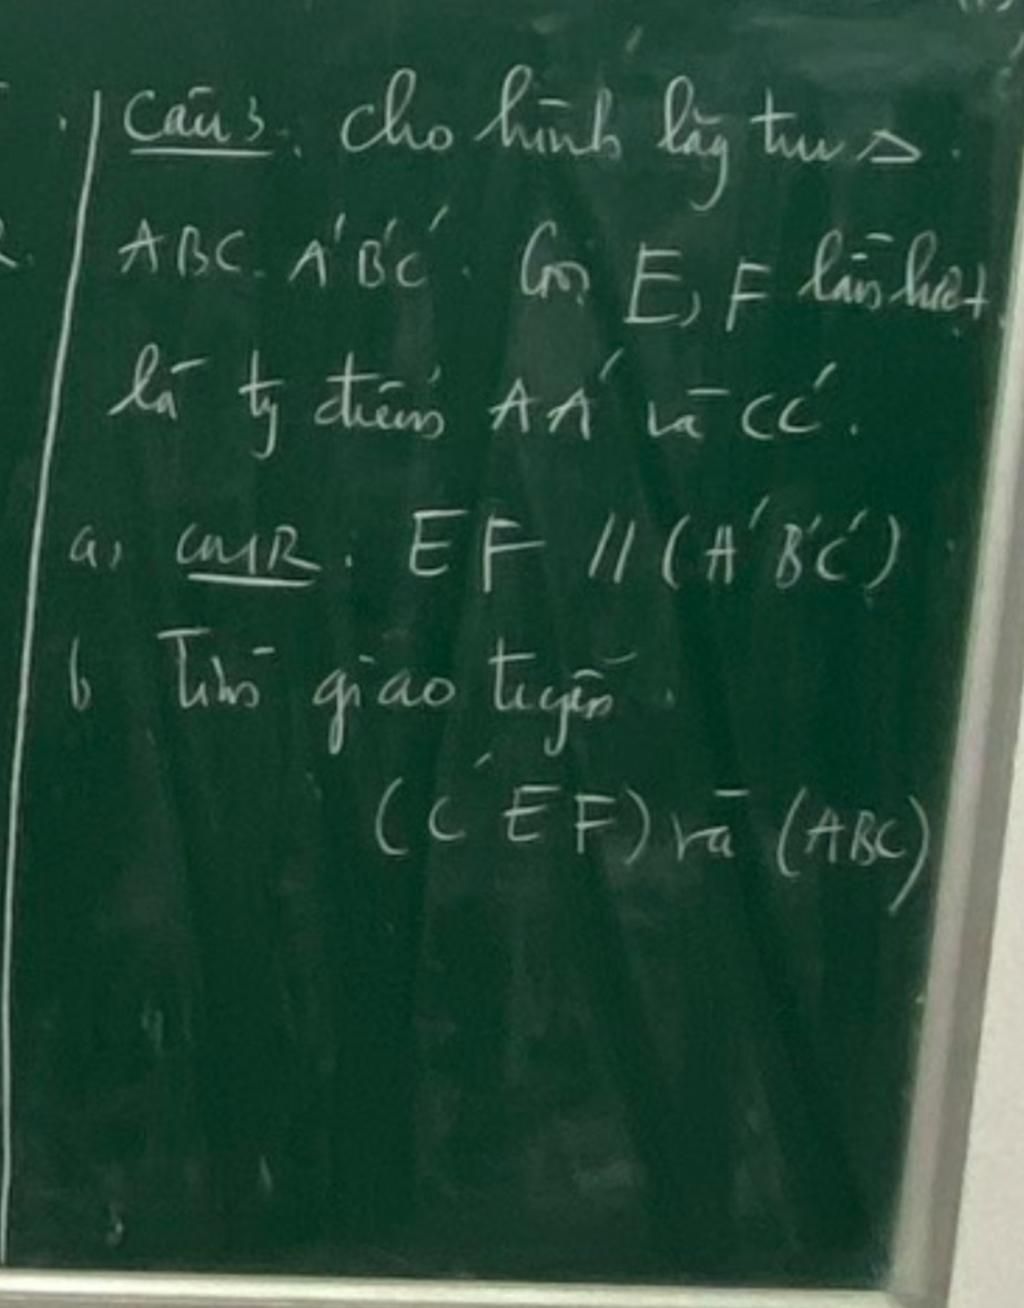 Câu 3. Cho hình lăng trụ Δ.
ABC. A'B'C'. Gọi E, F lần lượt
là tg điểm AA' và CC'.
a, CMR: EF // (A'B'C')
b Tìm giao tuyến.
(C'EF) và (ABC)